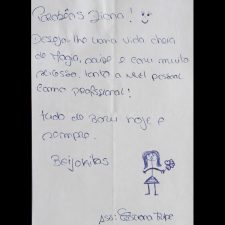 Parabéns Diana!
Desejo-lhe uma vida cheia
de Magia, saúde e com muito
sucesso tanto a nível pessoal
como profissional!
tudo de Bom hoje e
sempre.
Beijokitas
Ass: